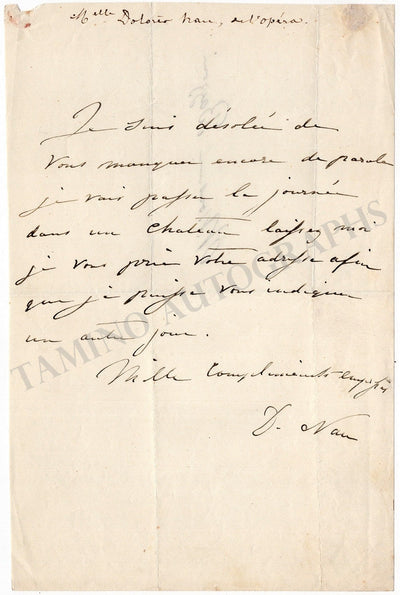 Melle Dolorès Nau, de l'opéra.
Je suis désolée de
vous manquer encore de parole
je vais passer la journée
dans un chateau laissez moi
je vous prie votre adresse afin
que je puisse vous indiquer
un autre jour.
Mille compliments empressés
D. Nau
TAMINO AUTOGRAPHS